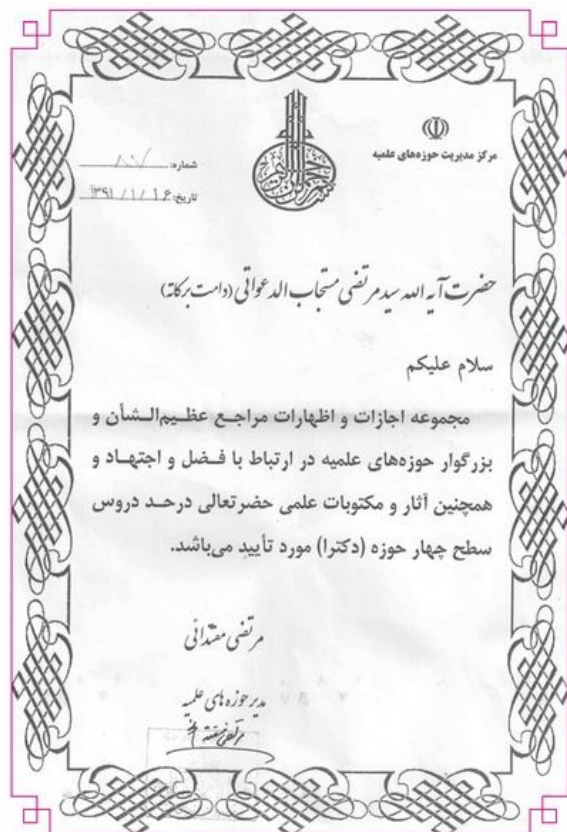 مرکز مدیریت حوزه‌های علمیه
شماره: ۸۰۷
تاریخ: ۱۳۹۱/۱/۱۶
حضرت آیه الله سید مرتضی مستجاب الدعواتی (دامت برکاته)
سلام علیکم
مجموعه اجازات و اظهارات مراجع عظیم‌الشأن و
بزرگوار حوزه‌های علمیه در ارتباط با فضل و اجتهاد و
همچنین آثار و مکتوبات علمی حضرتعالی درحد دروس
سطح چهار حوزه (دکترا) مورد تأیید می‌باشد.
مرتضی مقتدائی
مدیر حوزه های علمیه